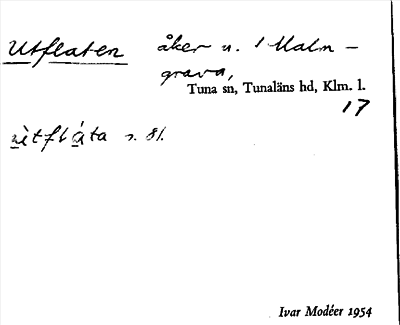 Utflaten åker u. 1 Malm-
grava,
Tuna sn, Tunaläns hd, Klm. l.
17
ùtflàta
Ivar Modéer 1954